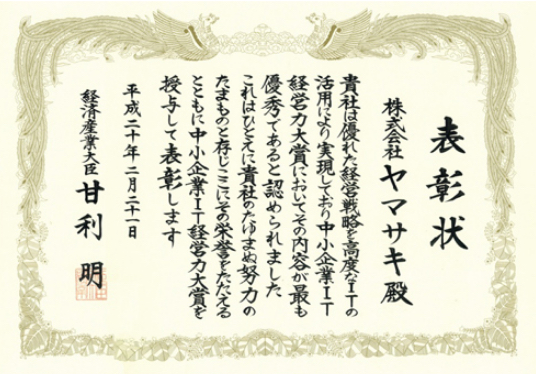 表彰状
株式会社ヤマサキ殿
貴社は優れた経営戦略を高度なITの
活用により実現しており中小企業IT
経営力大賞においてその内容が最も
優秀であると認められました
これはひとえに貴社のたゆまぬ努力の
たまものと存じここにその栄誉をたたえる
とともに中小企業IT経営力大賞を
授与して表彰します
平成二十年二月二十一日
経済産業大臣 甘利 明